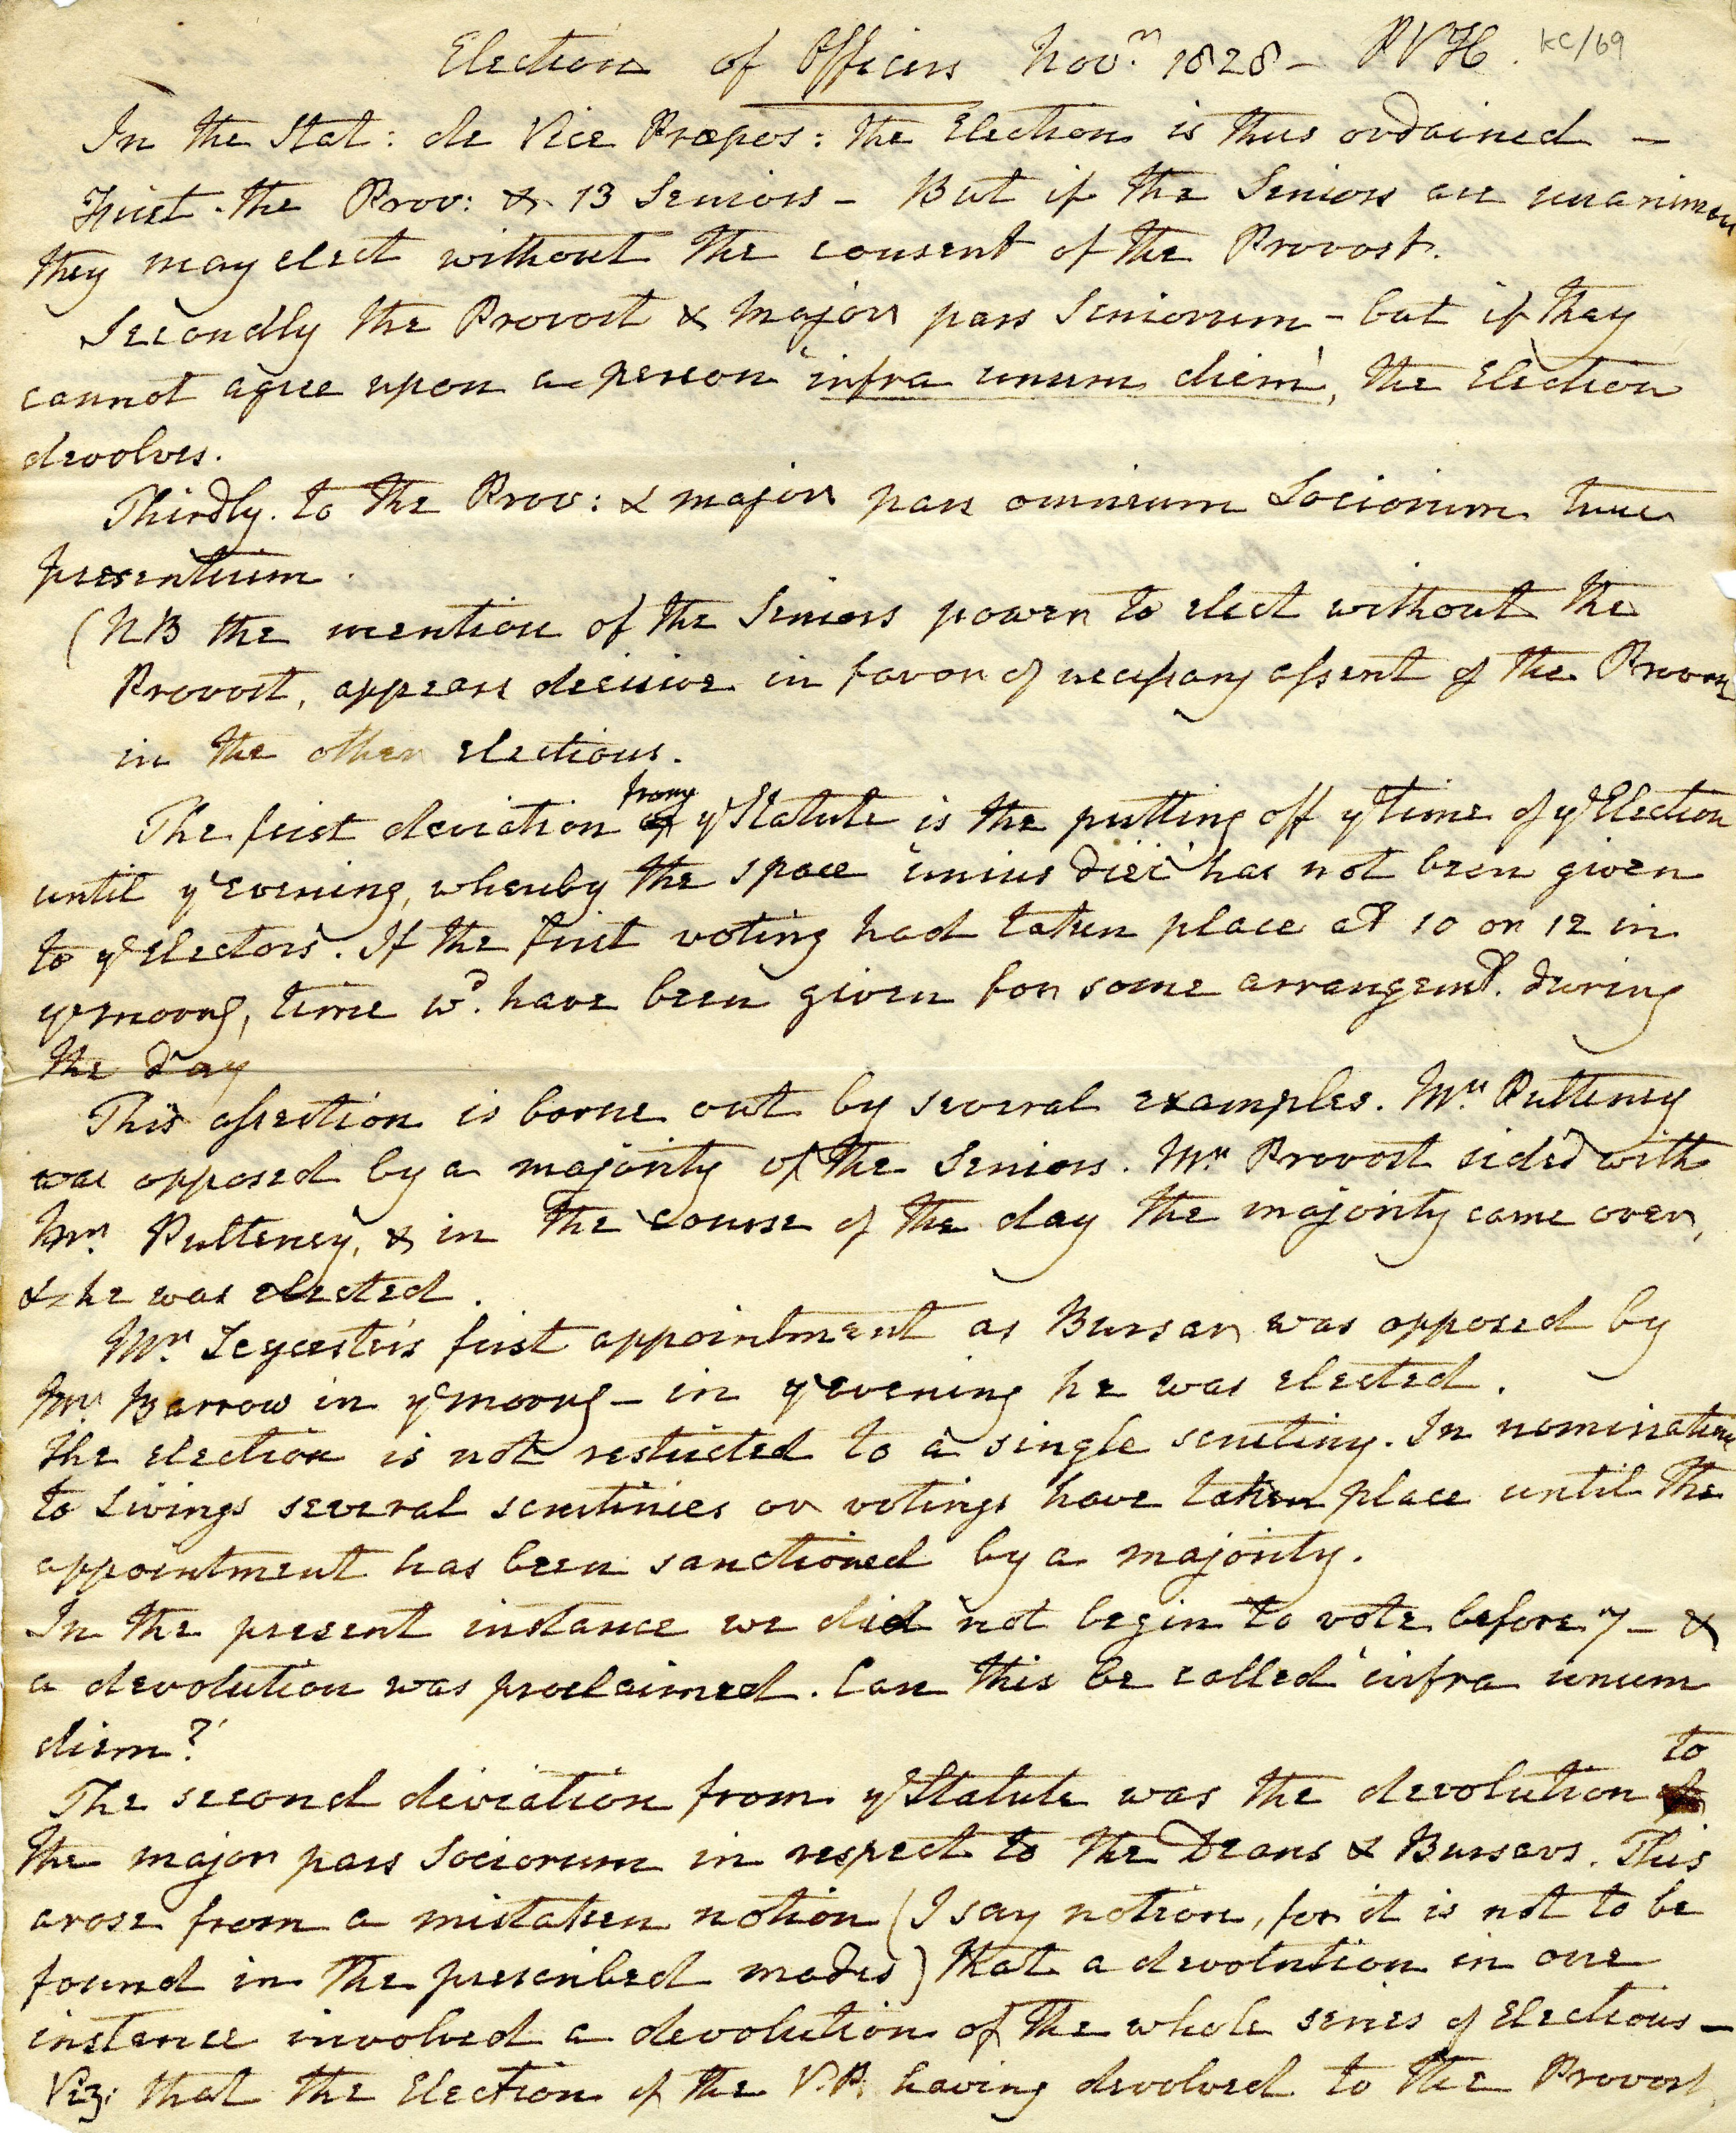 Election of Officers Nov.r 1828 – PVH. KC/69
In the Stat: de Vice Præpos: the Election is thus ordained –
First. the Prov: & 13 Seniors – But if the Seniors are unanimous
they may elect without the consent of the Provost.
Secondly the Provost & major pars Seniorum – but if they
cannot agree upon a person 'infra unum diem', the Election
devolves.
Thirdly. to the Prov: & major pars omnium Sociorum tunc
presentium.
(NB the mention of the Seniors power to elect without the
Provost, appears decisive in favor of necessary assent of the Provost
in the other elections.
from
The first deviation of ye Statute is the putting off ye time of ye Election
until ye evening, whereby the space 'unius diei' has not been given
to ye Electors. If the first voting had taken place at 10 or 12 in
ye morng, time wd. have been given for some arrangemt. during
the day
This assertion is borne out by several examples. Mr. Pulteney
was opposed by a majority of the Seniors. Mr. Provost sided with
Mr. Pulteney, & in the course of the day the majority came over,
& he was elected.
Mr. Leycester's first appointment as Bursar was opposed by
Mr. Barrow in ye morng – in ye evening he was elected.
The election is not restricted to a single scrutiny. In nominations
to Livings several scrutinies or votings have taken place until the
appointment has been sanctioned by a majority.
In the present instance we did not begin to vote before 7 – &
a devolution was proclaimed. Can this be called 'infra unum
diem?'
to
The second deviation from ye Statute was the devolution
the major pars Sociorum in respect to the Deans & Bursars. This
arose from a mistaken notion (I say notion, for it is not to be
found in the prescribed modes) that a devolution in one
instance involved a devolution of the whole series of Elections –
Viz: that the Election of the V.P. having devolved to the Provost,